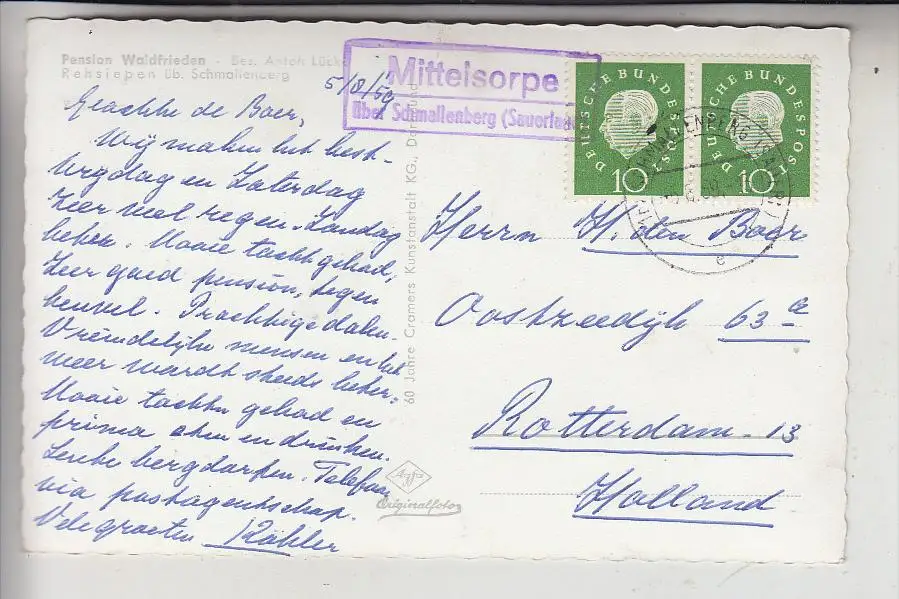 Pension Waldfrieden - Bes. Anton Lücke
Rehsiepen üb. Schmallenberg
5/8/59
Mittelsorpe
über Schmallenberg (Sauerland)
DEUTSCHE BUNDESPOST
10
DEUTSCHE BUNDESPOST
10
SCHMALLENBERG (SAUERL)
e
Geachte de Boer,
Wij maken het best.
Vrijdag en Zaterdag
zeer veel regen. Zondag
beter. Mooie tocht gehad,
Zeer goed pension, tegen
heuvel. Prachtige dalen.
Vriendelijke mensen en het
weer wordt steeds beter.
Mooie tochten gehad en
prima eten en drinken.
Leuke bergdorpen. Telefoon
via postagentschap.
Vele groeten Köhler
60 Jahre Cramers Kunstanstalt KG., Dortmund
Agfa
Originalfoto
Herrn H. den Boer
Oostzeedijk 63 a
Rotterdam - 13
Holland